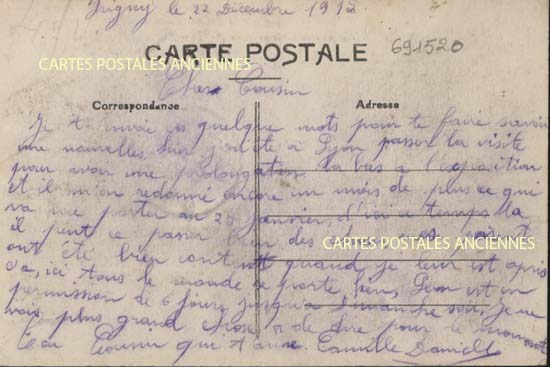 le 22 Décembre 1918
CARTE POSTALE
691520
CARTES POSTALES ANCIENNES
Cher Cousin
Correspondance
Adresse
Je t'envoi ces quelque mots pour te faire savoir
une nouvelles hier été a Lyon passer la visite
pour avoir une prolongation a l'exposition
et il m'on redonné encore un mois de plus ce qui
va me porter au 23 Janvier d'ici ce temps la
il peut ce passer bien des
CARTES POSTALES ANCIENNES
ont été bien content quand je leur est apris
ça, ici tous le monde se porte bien, Léon est en
permission de 6 jours jusqu'a Dimanche soir, Je ne
vois plus grand chose a te dire pour le moment
Ton Cousin qui t'aime. Camille Daniell